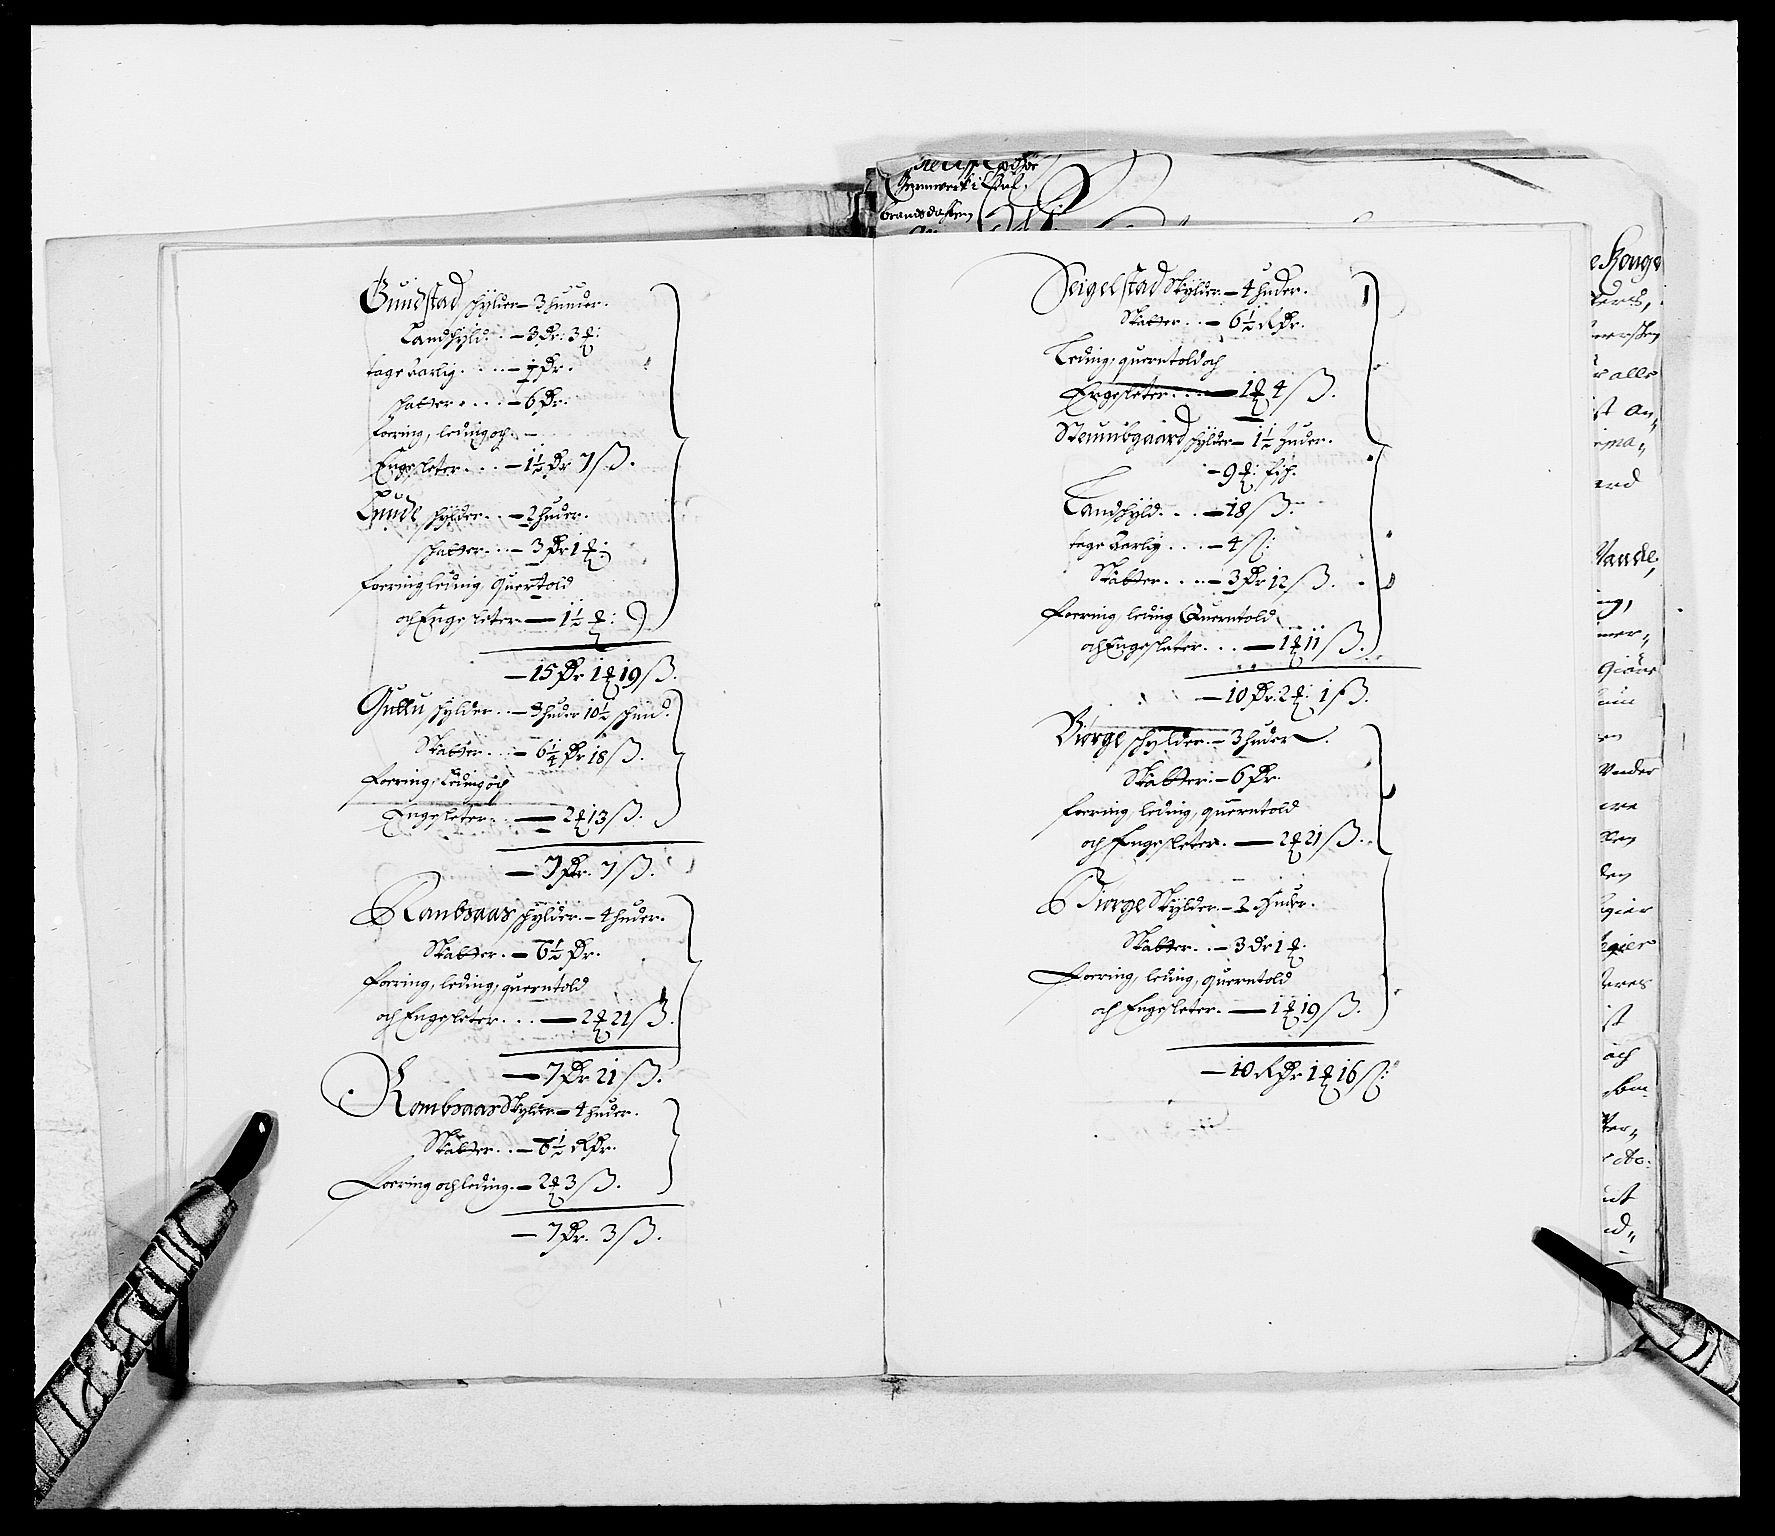 Gundstad schylder – 3 huuder.
Landschyld: – 3 Dr: 3 ℔:
tage Aarlig . . . . – 1 Dr.
schatter . . . . – 6 Dr.
foering, leding och –
Engesleter . . . – 1½ Dr 7 ß.
Lunde schylder . . – 2 huder.
schatter . . . – 3 Dr 1 ℔:
foering leding, Querntold
och Engesleter – 1½ ℔:
– 15 Dr 1 ℔ 19 ß.
Gullu schylder . . – 3 huder 10½ schind.
Skatter . . . – 6¼ Dr 18 ß.
foering, Leding och
Engesleter . . – 2 ℔ 13 ß.
– 7 Dr. 7 ß.
Rambsaas schylder. – 4 huder.
Skatter . – 6½ Dr.
foering, leding, querntold
och Engesleter . . . – 2 ℔ 21 ß.
– 7 Dr 21 ß.
Rombsaas Skylder – 4 huder.
Skatter . . – 6½ RDr.
foering och leding. – 2 ℔ 3 ß.
– 7 Dr. 3 ß.
Seigelstad Skylder. – 4 huder.
Skatter . . – 6½ RDr.
Leding, querntold och
Engesleter . . . – 1 ℔ 4 ß.
schylder – 1½ huder.
– 9 ℔: fisch.
Landschyld . . . – 18 ß.
tage Aarlig . . . – 4 ß:
Skatter . . . . – 3 Dr 12 ß.
foering, leding Querntold
och Engesleter . . . – 1 ℔ 11 ß.
– 10 Dr. 2 ℔: 1 ß.
Biorge schylder. – 3 huder.
Skatter: – 6 Dr.
foering, leding, querntold
och Engesleter. – 2 ℔ 21 ß.
Biorge Skylder – 2 Huder.
Skatter . . – 3 Dr 1 ℔.
foering, leding, querntold
och Engesleter. – 1 ℔ 19 ß.
– 10 RDr 1 ℔ 16 ß: